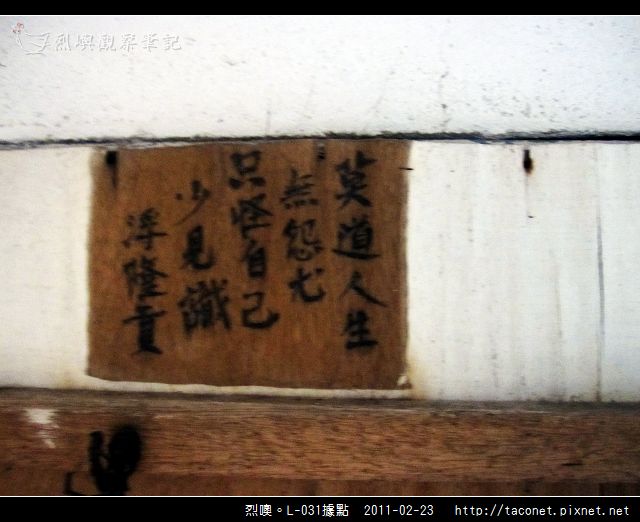 烈嶼觀察筆記
莫道人生
無怨尤
只怪自己
少見識
浮隆貴
烈嶼。L-031據點 2011-02-23 http://taconet.pixnet.net